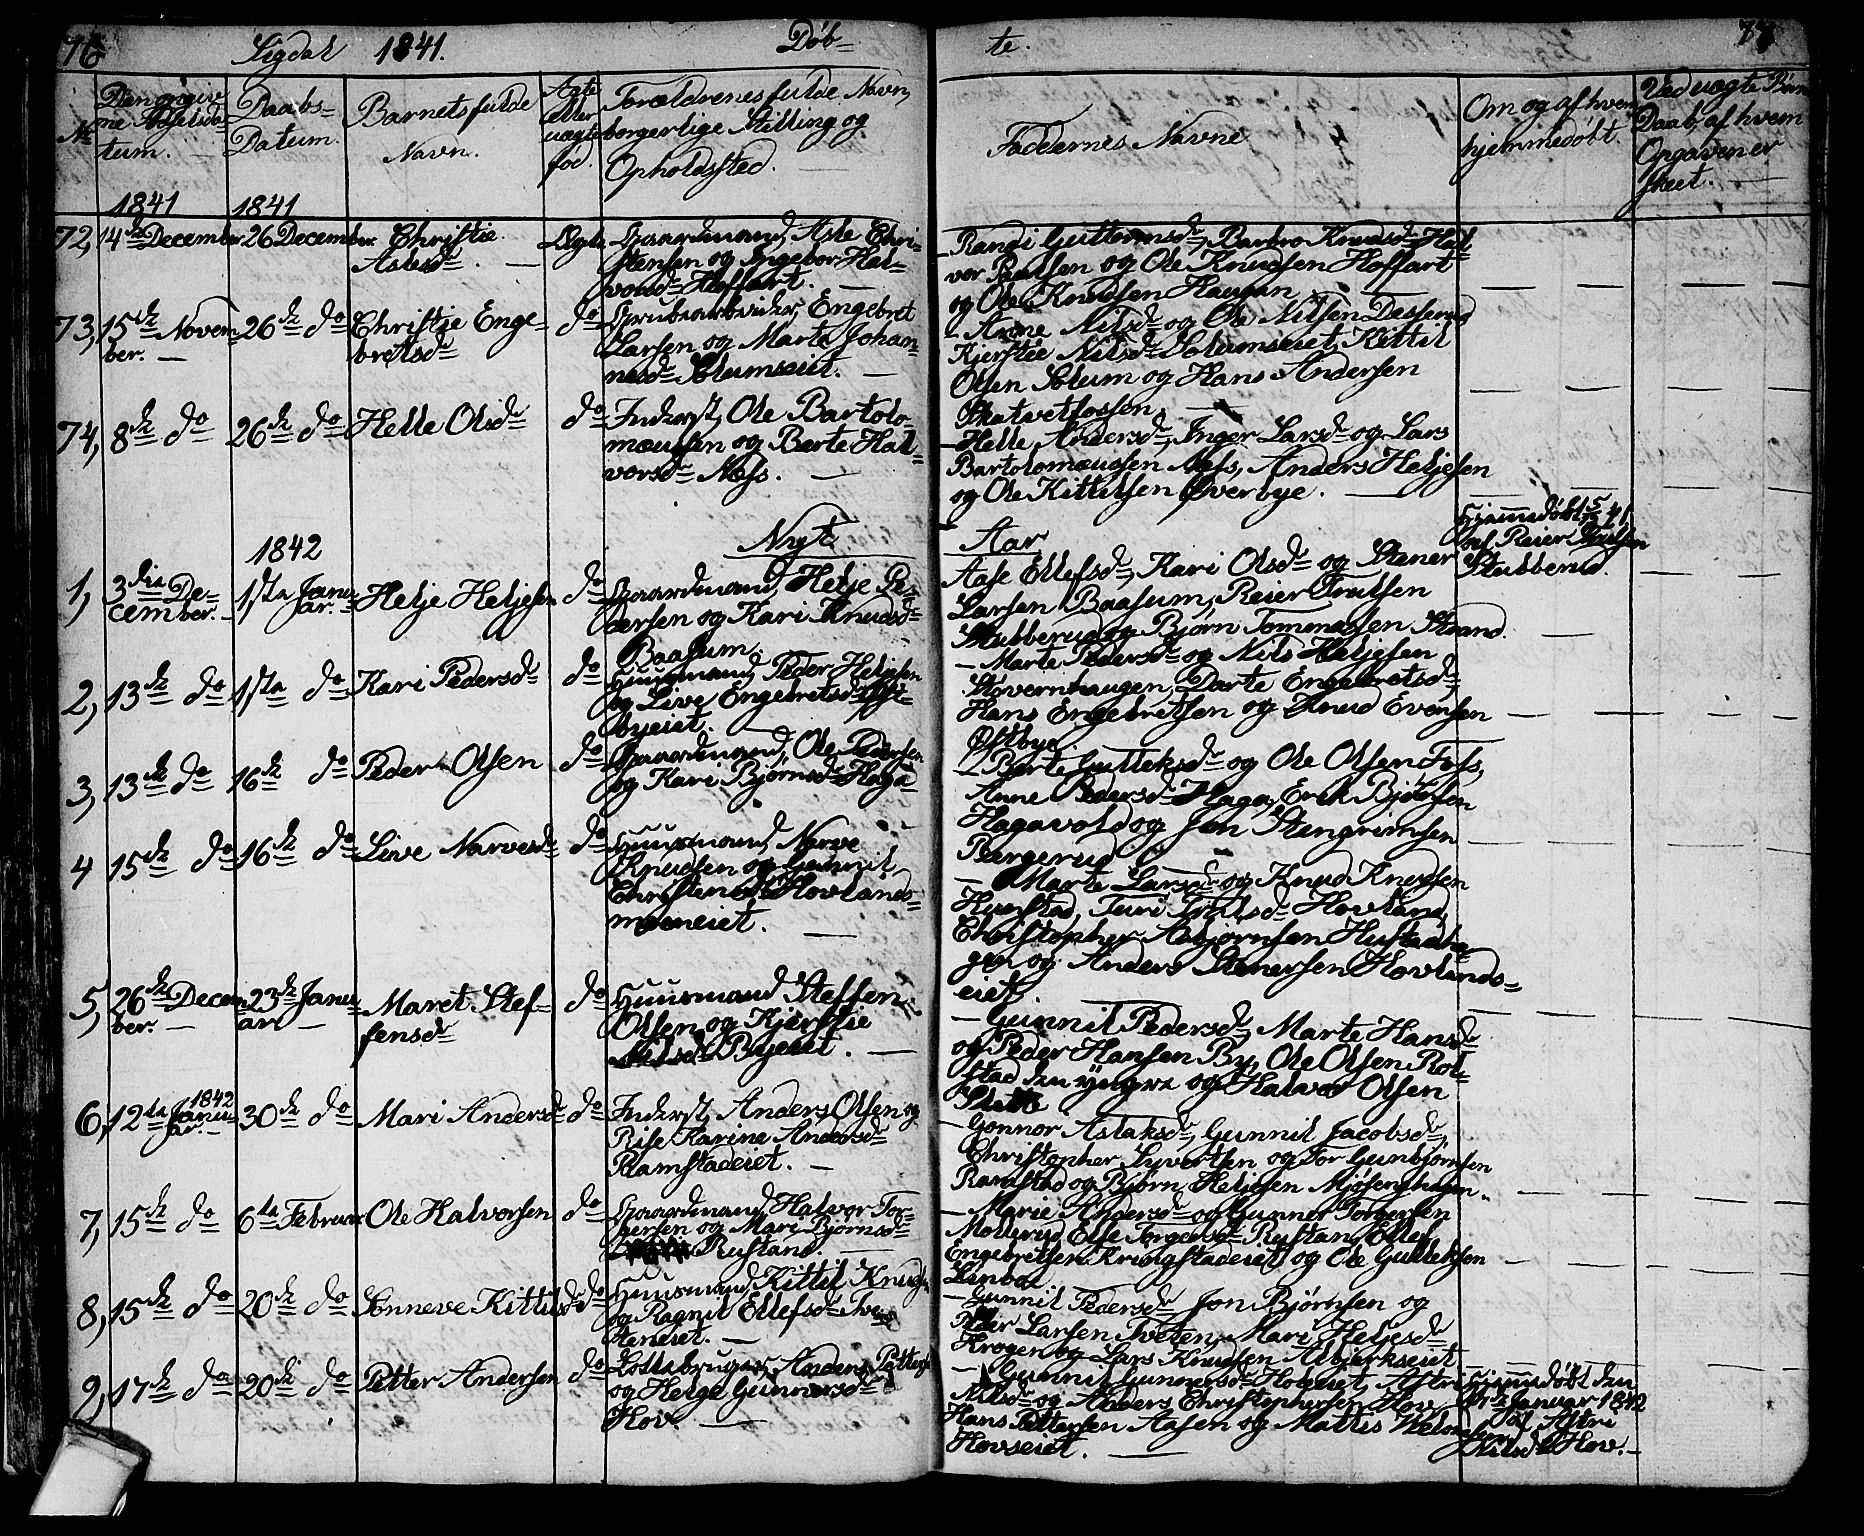 76 Sigdal 1841. Døb-
te. 77
No Den angivne Fødselsdatum. Daabs-Datum. Barnets fulde Navn. Ægte eller uægte fød. Forældrenes fulde Navn, borgerlige Stilling og Opholdssted.
Faddernes Navne Om og af hvem hjemmedøbt. Ved uægte Børns Daab, af hvem Opgaven er skeet.
1841 1841
72, 14de December 26 December Christie Aslesdr. Ægte Gaardmand, Asle Chri-
stensen og Ingebor Hal-
vorsdr Hoffart.
Randi Guttormsdr, Barbro Knudsdr Hal-
vor Paulsen og Ole Knudsen Hoffart
og Ole Knudsen Haugan
73, 15de Novem-
ber. 26de do Christie Enge-
bretsdr do Grubearbeider, Engebret
Larsen og Marte Johan-
nesdr Solumseiet.
- Anne Nilsdr og Ole Nilsen Desserud
Kjerstie Nilsdr Solumseiet, Kittil
Olsen Solum og Hans Andersen
Skatvetfossen
74, 8de do 26de do Helle Olsdr do Inderst, Ole Bartolo-
mæussen og Berte Hal-
vorsdr Næss.
- Helle Andersdr, Inger Larsdr og Lars
Bartolomæussen Næss, Anders Heljesen
og Ole Kittilsen Øverbye.
Nyt Aar
1842
1, 3die De-
cember. 1ste Janu-
ar. Helje Heljesen do Gaardmand, Helje Pe-
dersen og Kari Knudsdr
Baasum.
Aase Ellefsdr, Kari Olsdr og Stener
Larsen Baasum, Reier Trulsen
Stubberud og Bjørn Tommassen Strand.
Hjemmedøbt 5/12 41,
af Reier Trulsen
Stubberud.
2, 13de do 1ste do Kari Pedersdr do Huusmand, Peder Heljesen
og Live Engebretsdr Øst-
byeiet.
- Marte Pedersdr og Nils Heljesen
Stovernhaugen, Dorte Engebretsdr,
Hans Engebretsen og Knud Evensen
Østbye.
3, 13de do 16de do Peder Olsen do Gaardmand, Ole Pedersen
og Kari Bjørnsdr Haga
- Berte Gulleksdr og Ole Olsen Foss,
Anne Pedersdr Haga, Erik Bjørnsen
Hagavold og Jon Stengrimsen
Bergerud
4 15de do 16de do Live Narvesdr do Huusmand, Narve
Knudsen og Gunnil
Christensdr Hovlands-
moeneiet.
- Marte Larsdr og Knud Knudsen
Hurstad, Turi Trulsdr Hovland,
Christopher Asbjørnsen Hustadha-
gen og Anders Stenersen Hovlands-
eiet
5, 26de Decem-
ber. 23de Janu-
ar Maret Stef-
fensdr do Huusmand Steffen
Olsen og Kjerstie
Nilsdr Byeiet.
- Gunnil Pedersdr, Marte Hansdr
og Peder Hansen By, Ole Olsen Rol-
stad den yngre og Halvor Olsen
6, 12te Janu-
ar. 1842 30de do Mari Andersdr do Inderst, Anders Olsen og
Rise Karine Andersdr
Ramstadeiet.
- Gonnor Aslaksdr, Gunnil Jacobsdr,
Christopher Syvertsen og Tor Gunbjørnsen
Ramstad og Bjørn Heljesen Mjøsenghagen.
7, 15de do 6te Februar Ole Halvorsen do Gaardmand, Halvor Tor-
gersen og Mari Bjørnsdr
Rustand.
- Marie Andersdr og Gunner Torgersen
Mollerud, Else Torgersdr Rustan, Ellef
Engebretsen Kringstadeiet og Ole Gulleksen
Linbøl
8, 15de do 20de do Sonneve Kittilsdr do Huusmand, Kittil Knudsen
og Ragnil Ellefsdr Tve-
teneiet.
- Gunnil Pedersdr, Jon Bjørnsen og
Peder Larsen Tveten, Mari Heljesdr
Krogen og Lars Knudsen Albjerkseiet
9, 17de do 20de do Petter Andersen do Lottebruger, Anders Petters.
og Helge Gunnersdr
Hov.
- Gunnil Gunnersdr Hoveiet, Astri
Nilsdr og Anders Christophersen Hov,
Hans Pettersen Aasen og Mattis
Hovseiet.
Hjemmedøbt den
17de Januar 1842
af Astri
Nilsdr Hov.